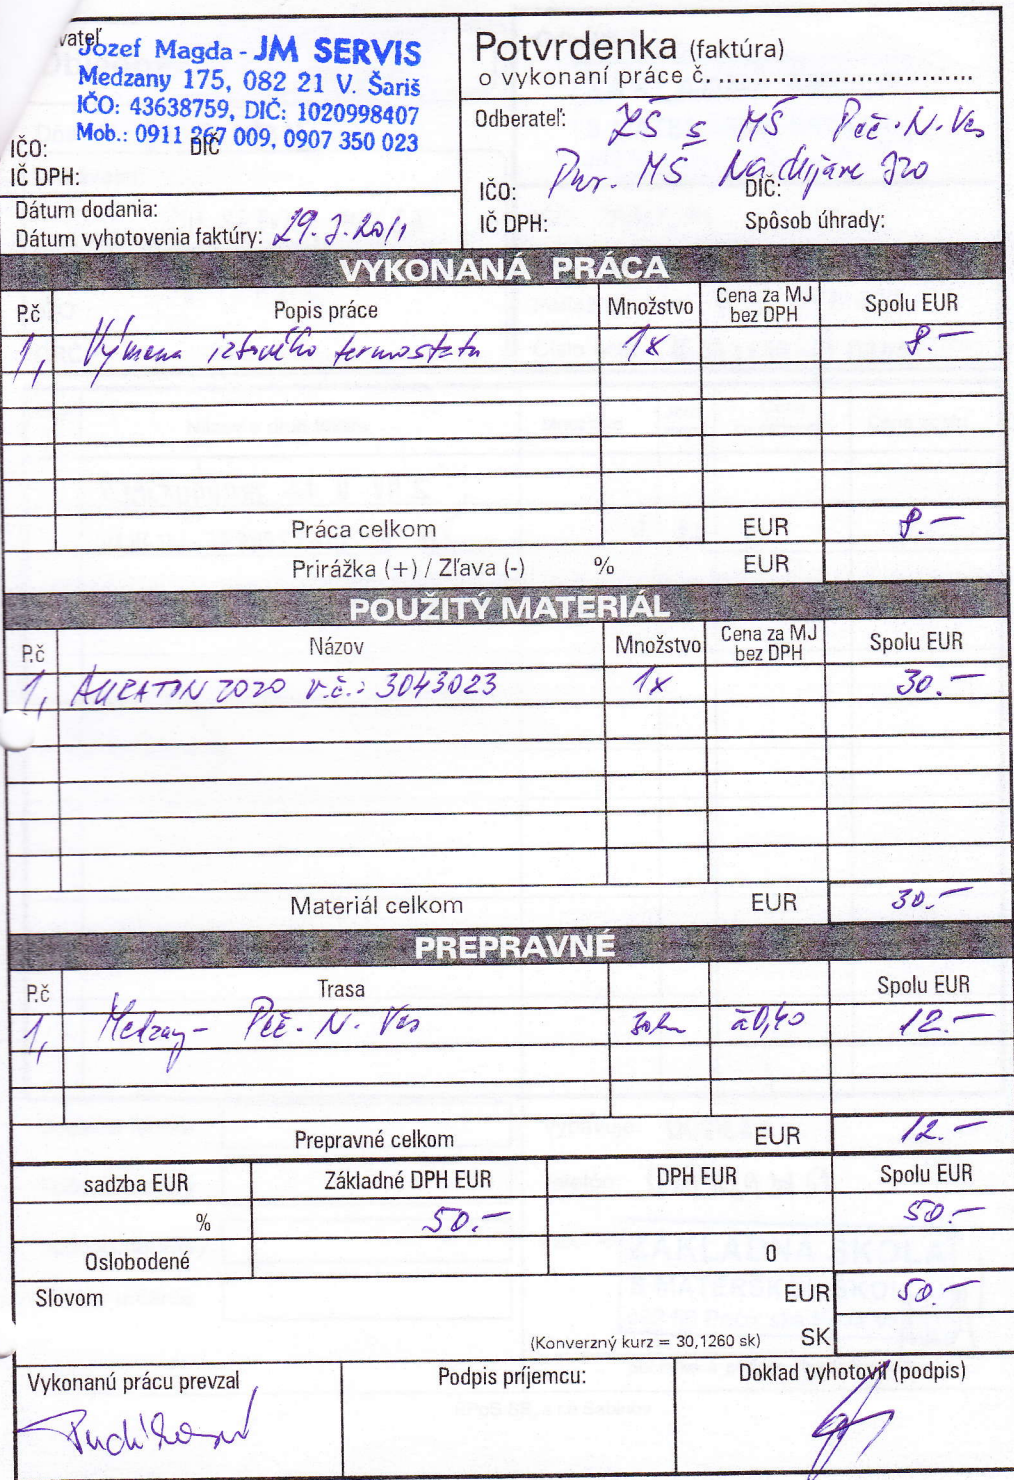 vateľ
Jozef Magda - JM SERVIS
Medzany 175, 082 21 V. Šariš
IČO: 43638759, DIČ: 1020998407
Mob.: 0911 267 009, 0907 350 023
IČO: DIČ
IČ DPH:
Dátum dodania:
Dátum vyhotovenia faktúry: 29.3.2011
Potvrdenka (faktúra)
o vykonaní práce č. ................................
Odberateľ: ZŠ s MŠ Peč. N. Ves
MŠ
IČO: DIČ:
IČ DPH: Spôsob úhrady:
VYKONANÁ PRÁCA
P.č Popis práce Množstvo Cena za MJ bez DPH Spolu EUR
1, Výmena izbového termostatu 1x 8.-
Práca celkom EUR 8.-
Prirážka (+) / Zľava (-) % EUR
POUŽITÝ MATERIÁL
P.č Názov Množstvo Cena za MJ bez DPH Spolu EUR
1, AURATON 2020 v.č.: 3043023 1x 30.-
Materiál celkom EUR 30.-
PREPRAVNÉ
P.č Trasa Spolu EUR
1, Medzany - Peč. N. Ves 30km á0,40 12.-
Prepravné celkom EUR 12.-
sadzba EUR Základné DPH EUR DPH EUR Spolu EUR
% 50.- 50.-
Oslobodené 0
Slovom EUR 50.-
(Konverzný kurz = 30,1260 sk) SK
Vykonanú prácu prevzal Podpis príjemcu: Doklad vyhotovil (podpis)